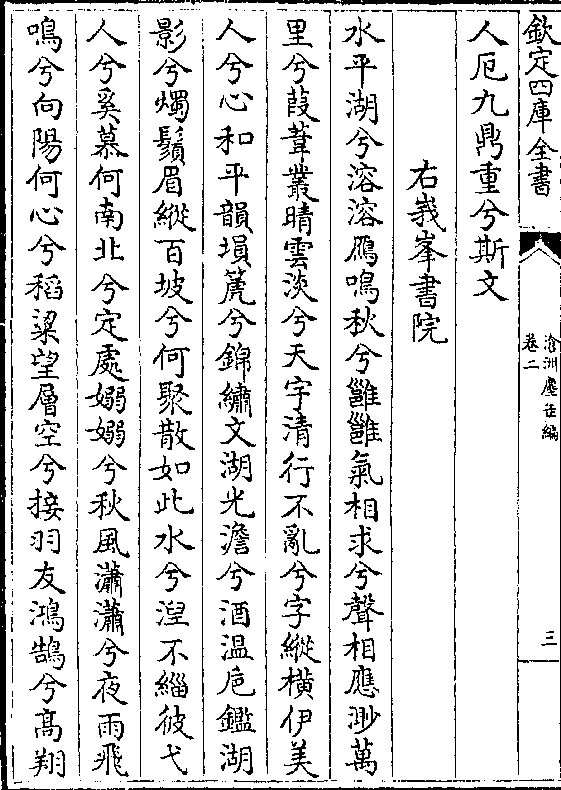 欽定四庫全書
滄洲塵缶編
卷二
三
人厄九鼎重兮斯文
右峩峯書院
水平湖兮溶溶鴈鳴秋兮雝雝氣相求兮聲相應渺萬
里兮葭葦叢晴雲淡兮天字清行不亂兮字縱橫伊美
人兮心和平韻塤箎兮錦繡文湖光澹兮酒温巵鑑湖
影兮燭鬚眉縱百坡兮何聚散如此水兮湼不緇彼弋
人兮奚慕何南北兮定處嫋嫋兮秋風瀟瀟兮夜雨飛
鳴兮向陽何心兮稻粱望層空兮接羽友鴻鵠兮髙翔